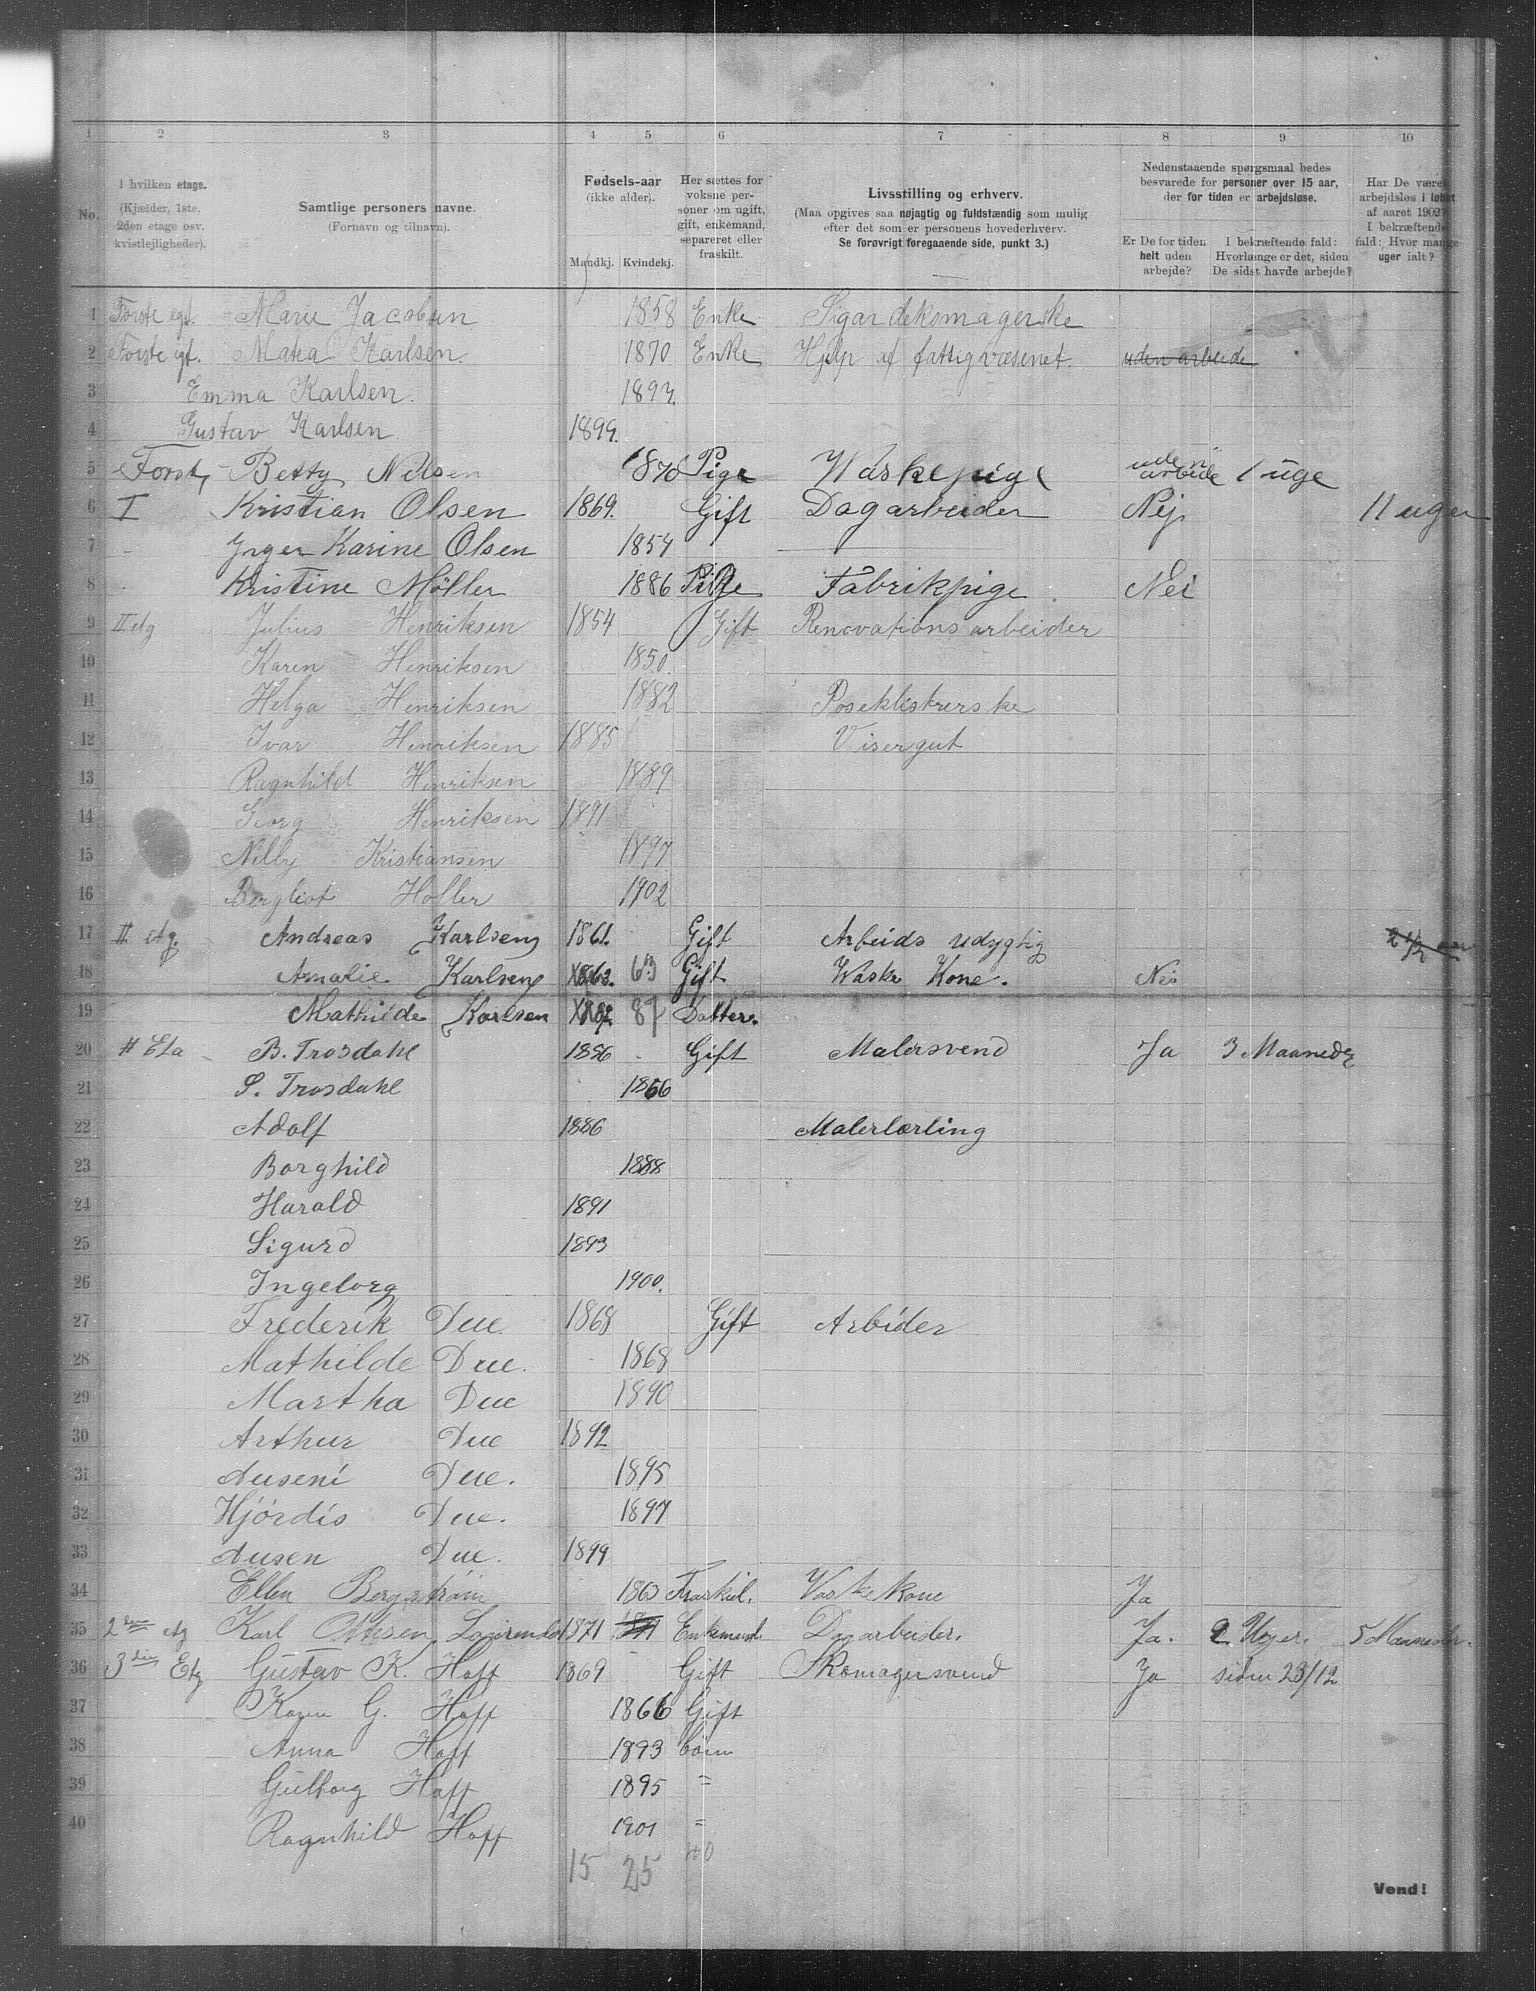 1 2 3 4 5 6 7 8 9 10
No.
I hvilken etage.
(Kjælder, 1ste,
2den etage osv.
kvistlejligheder).
Samtlige personers navne.
(Fornavn og tilnavn).
Fødsels-aar
(ikke alder).
Mandkj. Kvindekj.
Her sættes for
voksne per-
soner om ugift,
gift, enkemand,
separeret eller
fraskilt.
Livsstilling og erhverv.
(Maa opgives saa nøjagtig og fuldstændig som mulig
efter det som er personens hovederhverv.
Se forøvrigt foregaaende side, punkt 3.)
Nedenstaaende spørgsmaal bedes
besvarede for personer over 15 aar,
der for tiden er arbejdsløse.
Er De for tiden
helt uden
arbejde?
I bekræftende fald:
Hvorlænge er det, siden
De sidst havde arbejde?
Har De været
arbejdsløs i løbet
af aaret 1902?
I bekræftende
fald: Hvor mange
uger ialt?
1 Forste egt. Marie Jacobsen 1858 Enke Sigardekomagerske
2 Forste gt. Maka Karlsen 1870 Enke Hjelp af fattigvæsenet. uden arbeide
3 Emma Karlsen. 1893.
4 Gustav Karlsen 1899.
5 Forst, Betty Nilsen 1870 Pige Waskepige uden arbeide 1 uge
6 I Kristian Olsen 1869. Gift Dagarbeider Nej. 11 uger
7 Ynger Karine Olsen 1854
8 Kristine Möller 1886 Pige Fabrikpige Nei
9 II etg Julius Henriksen 1854 Gift Renovations arbeider
10 Karen Henriksen 1850.
11 Helga Henriksen 1882 Poseklistrerske
12 Ivar Henriksen 1885 Visergut
13 Ragnhild Henriksen 1889
14 Georg Henriksen 1891
15 Nelly Kristiansen 1897
16 Bergliot Holler 1902
17 II etg. Andreas Karlsen 1861. Gift Arbeids udygtig 2 1/2 aar
18 Amalie Karlsen 1863. 63 Gift Waske Kone. Nei
19 Mathilde Karlsen 1887. 87 Datter.
20 II Eta B. Trosdahl 1856 Gift Malersvend Ja 3 Maaneder
21 S. Trosdahl 1866
22 Adolf 1886 Malerlærling
23 Borghild 1888
24 Harald 1891
25 Sigurd 1893
26 Ingeborg 1900.
27 Frederik Due. 1868 Gift Arbeider
28 Mathilde Due. 1868
29 Martha Due 1890
30 Arthur Due 1892
31 Ausené Due. 1895
32 Hjördis Due. 1897
33 Ausen Due. 1899
34 Ellen Bergström 1863 Fraskil. Vaskekone Ja
35 2den etg Karl Ottesen 1871 1871 Enkemand. Dagarbeider. Ja. 2 Uger. 5 Maaneder.
36 3die Etg Gustav K. Hoff 1869 Gift Skomagersvend Ja siden 23/12
37 Karen G. Hoff 1866 Gift
38 Anna Hoff 1893 börn
39 Gulborg Hoff 1895 "
40 Ragnhild Hoff 1901 "
15 25 40
Vend!